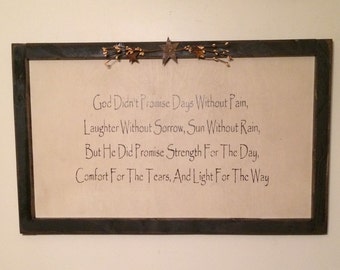 God Didn't Promise Days Without Pain,
Laughter Without Sorrow, Sun Without Rain,
But He Did Promise Strength For The Day,
Comfort For The Tears, And Light For The Way